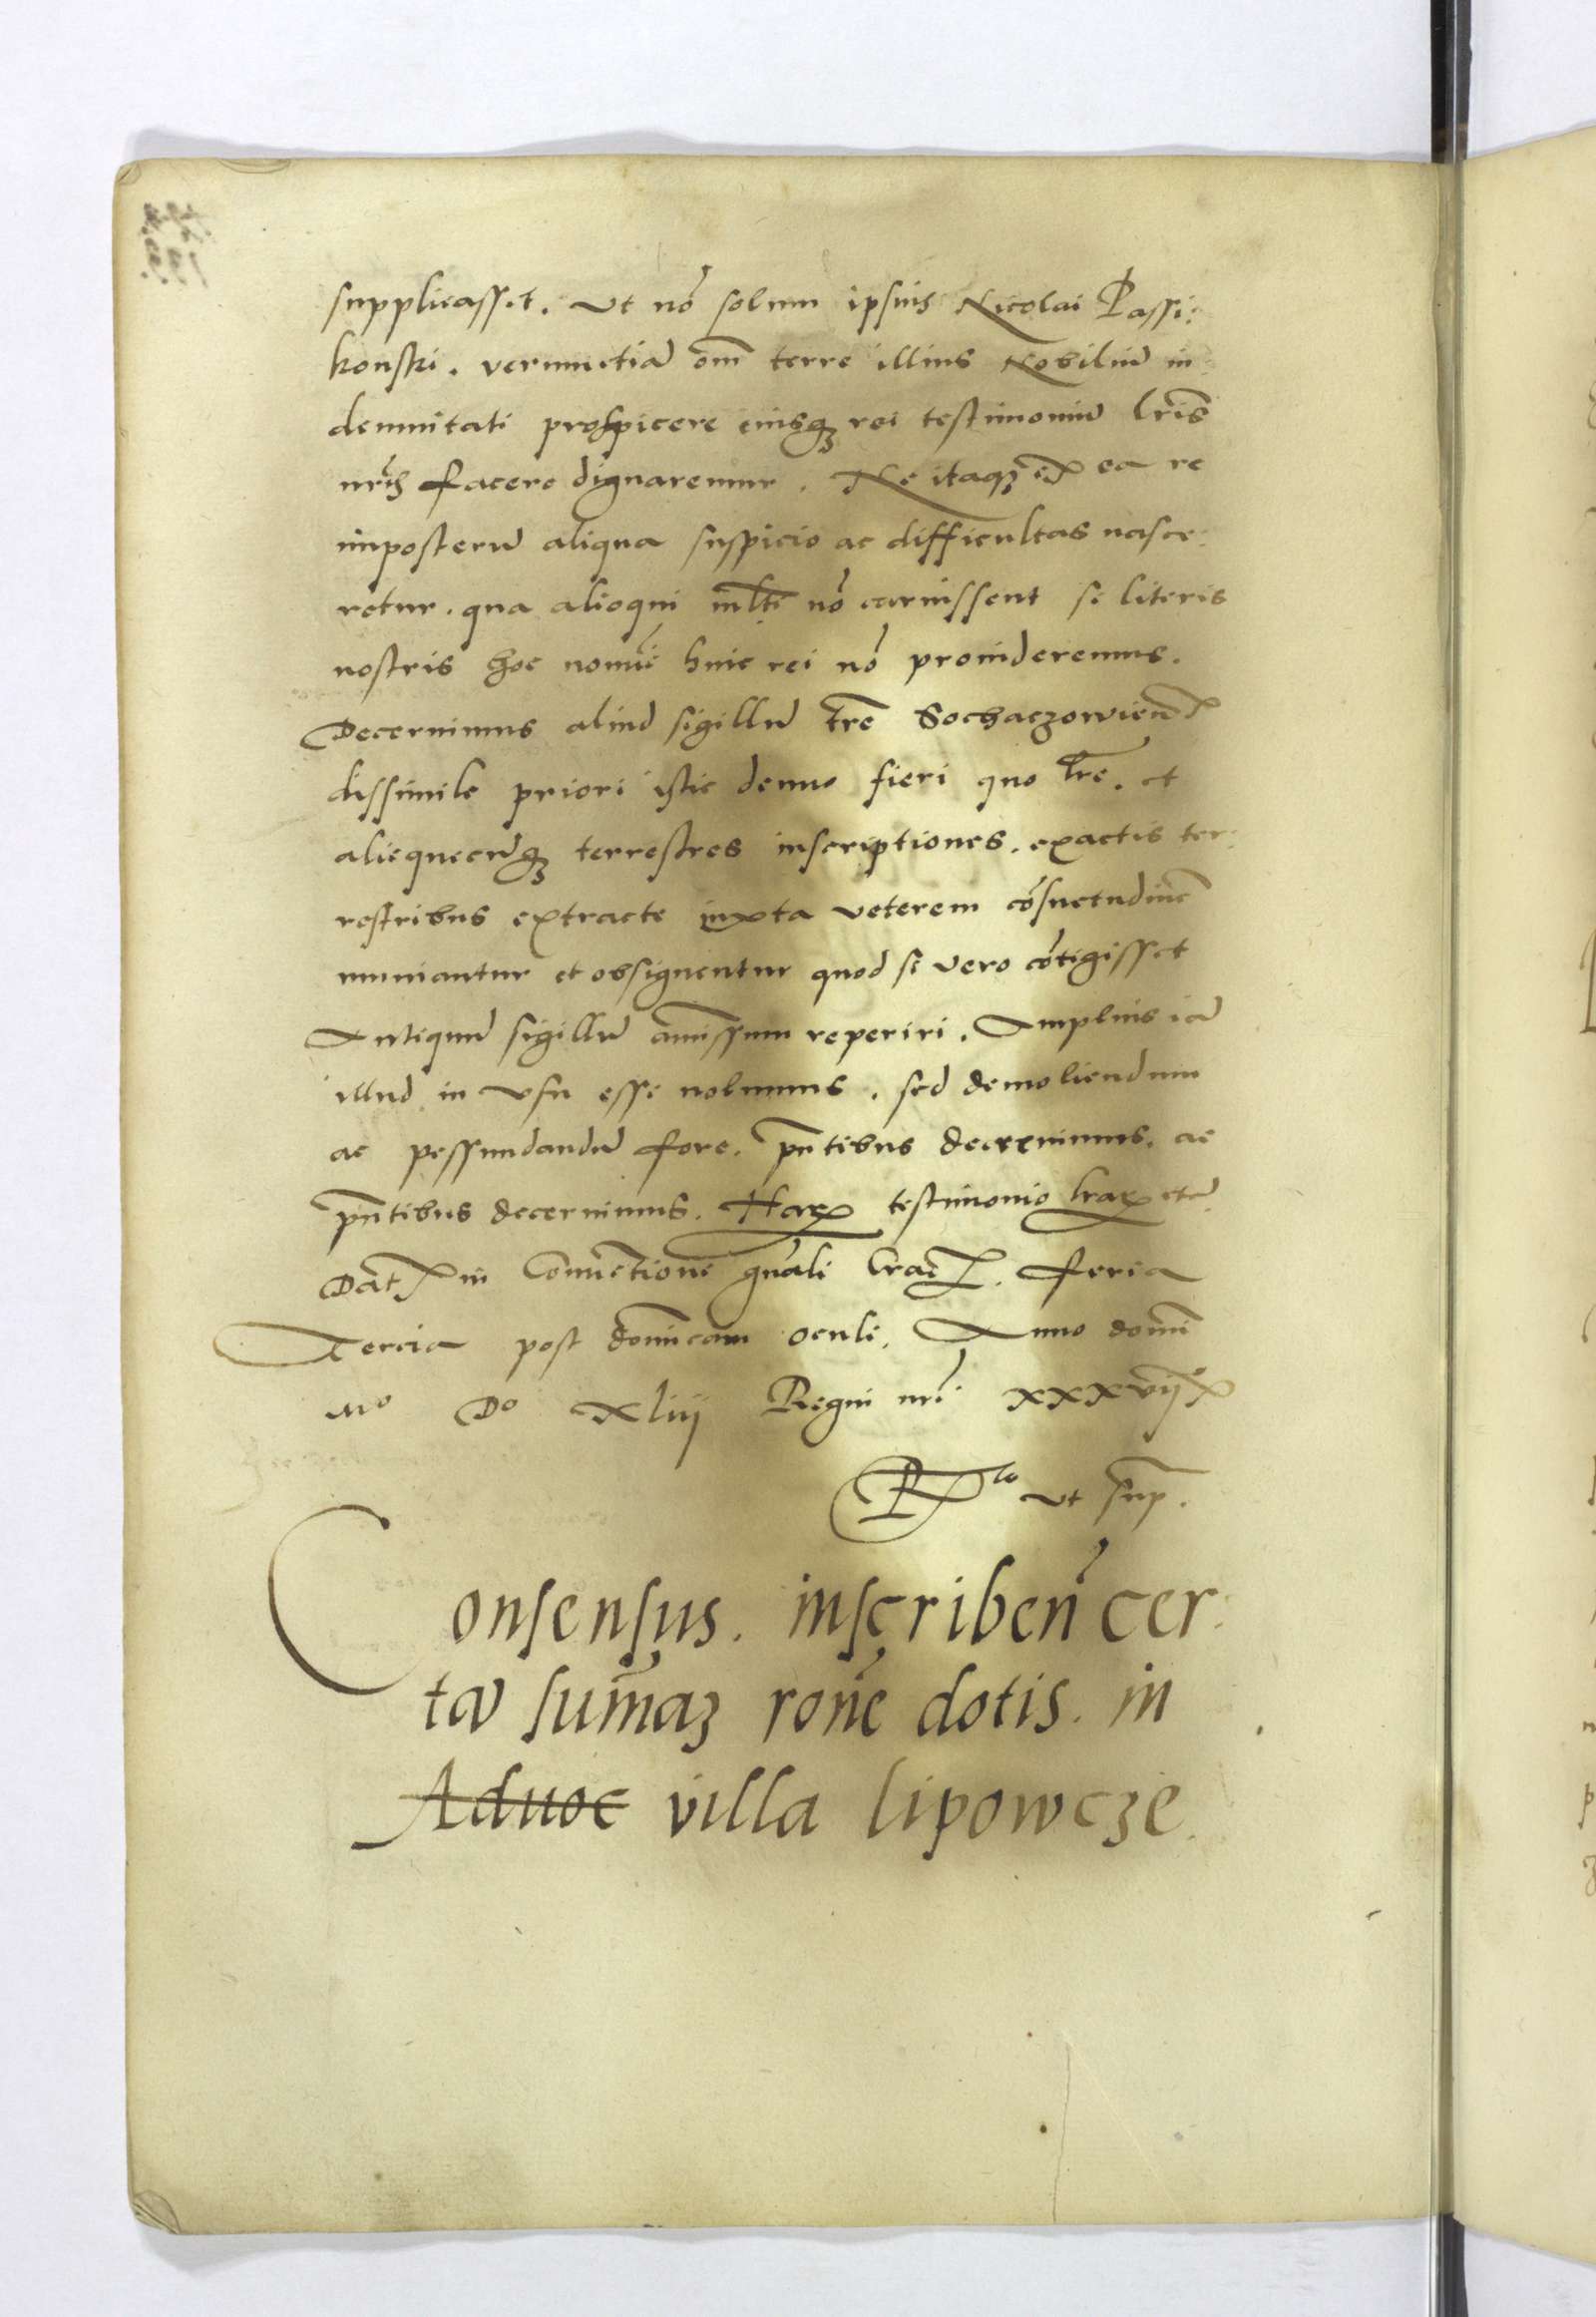 supplicasset. Ut nō solum ipsius Nicolai Passi:
konski. verumetiā om̄ terre illius Nobiliū in
demnitati prospicere eiusqꝫ rei testimoniū lr̄is
nr̄is facere dignaremur. Ne itaqꝫ ex ea re
imposterū aliqua suspicio ac difficultas nasce:
retur. qua alioqui ml̄ti nō caruissent si literis
nostris hoc nomīe huic rei nō prouideremus.
Decernimus aliud sigillū tr̄e Sochaczowien̄
dissimile priori istic denuo fieri quo lr̄e. et
aliequecūqꝫ terrestres inscriptiones. exactis ter:
restribus extracte iuxta veterem cōsuetudinē
muniantur et obsignentur quod si vero cōtigisset
Antiquū sigillū amissum reperiri. Amplius iā
illud in usu esse nolumus. sed demoliendum
ac pessundandū fore. pn̄tibus decernimus. ac
pn̄tibus decernimus. Harꝝ testimonio lr̄arꝝ etā
Dat̄ in Conuētione gn̄ali Crac̄. feria
Tercia post domīcam oculi. Anno domī
Mo Do xliij Regni nr̄i xxxvij
Rlo ut sup̄.
Consensus. inscribēn cer:
tā sum̄aꝫ rōne dotis. in
Aduoc villa lipowcze